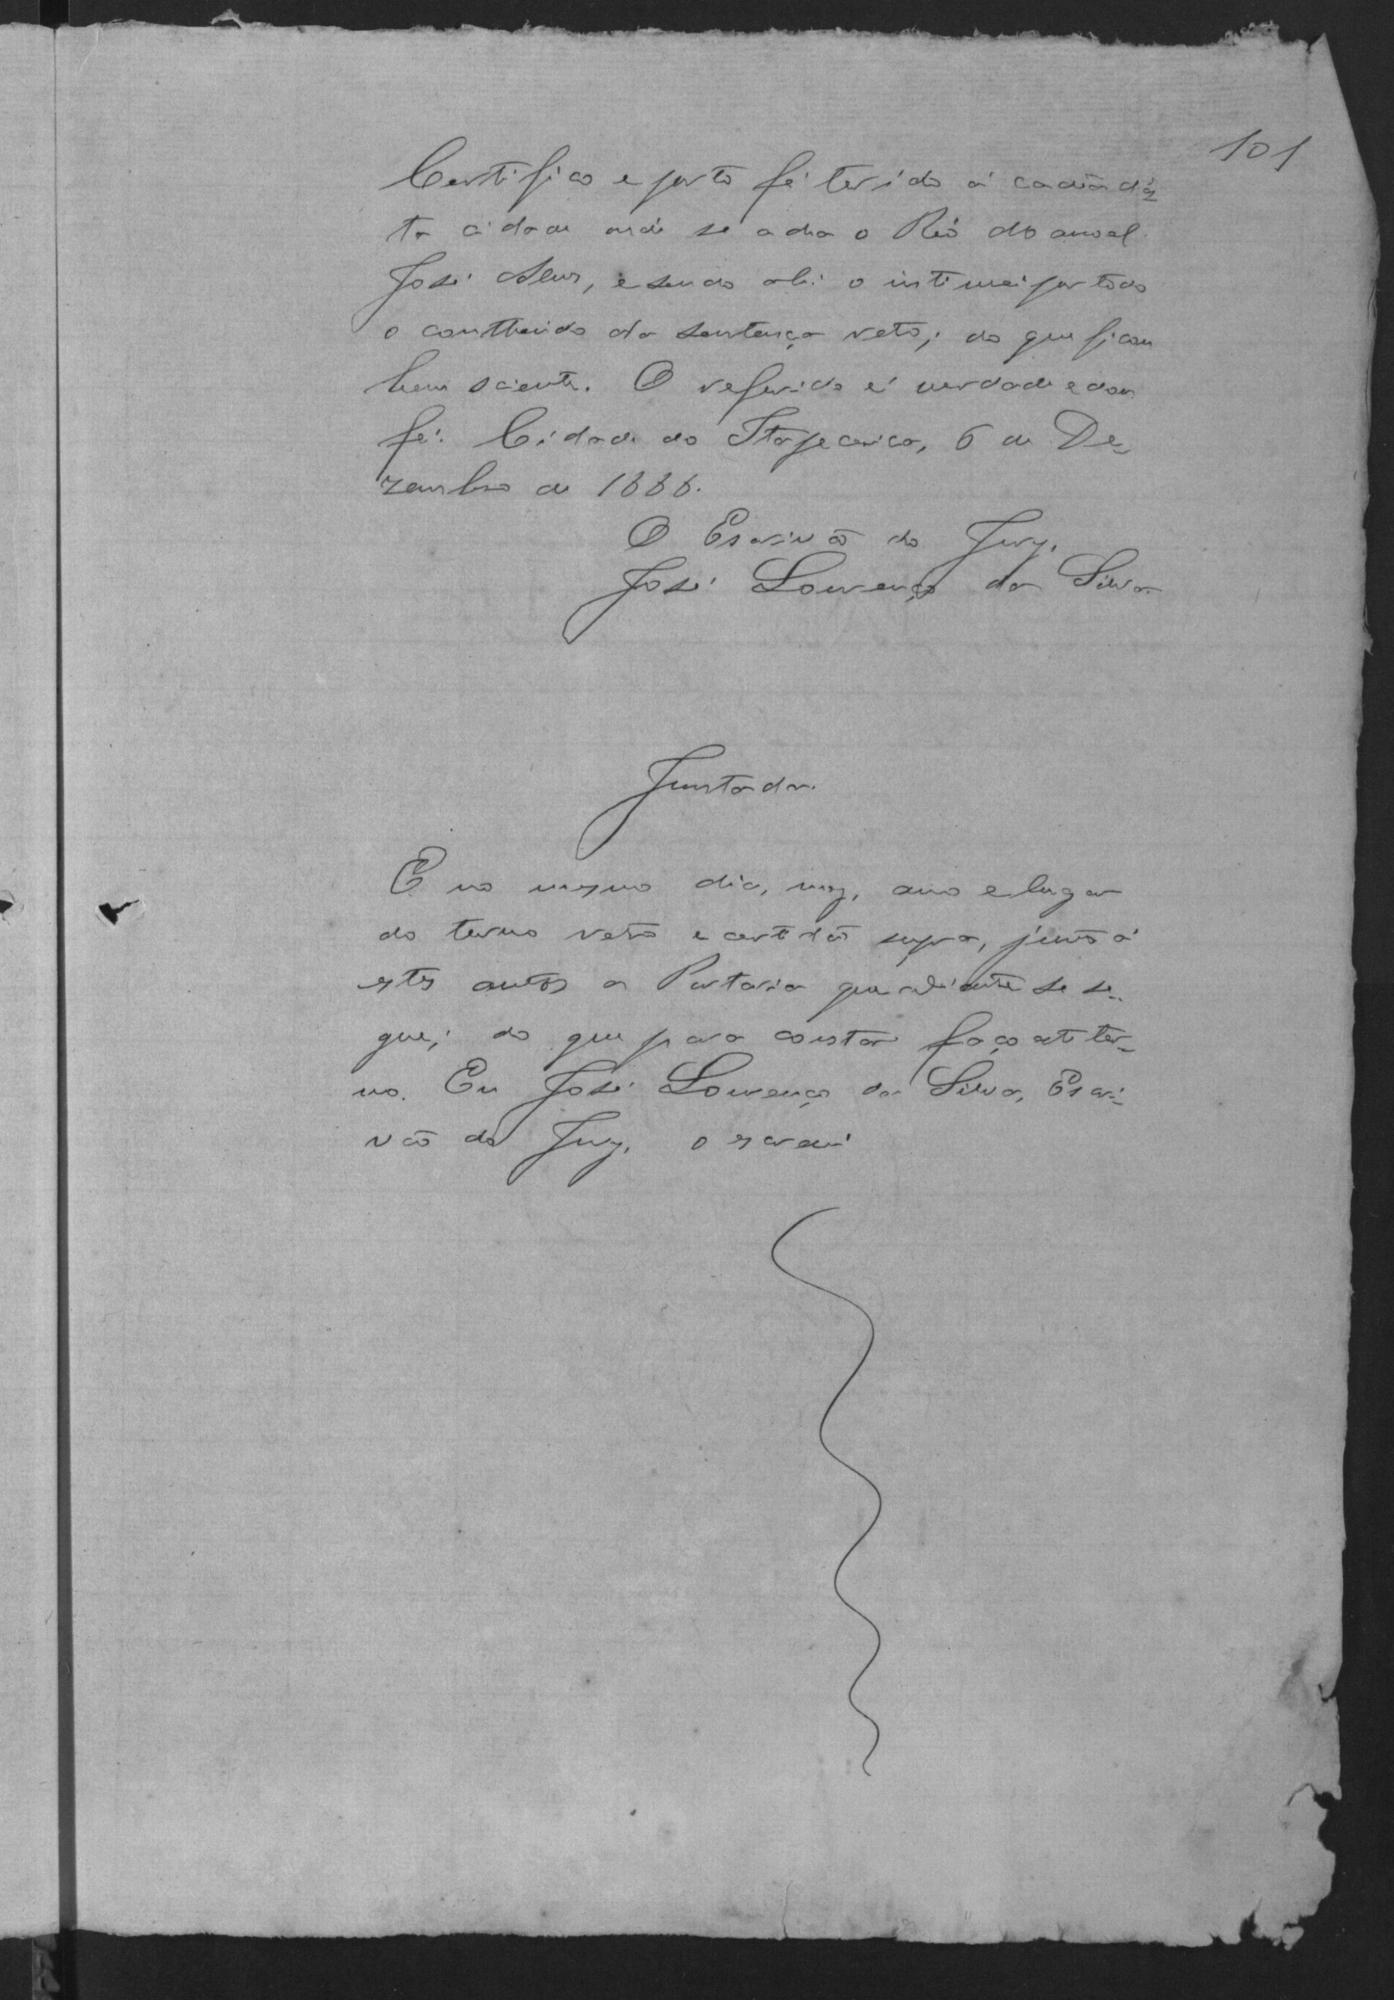 101
Certifico e porto fé ter ido á cadêa des
ta cidade onde se acha o Réo Manoel
José Alves, e sendo ahi o intimei por todo
o contheudo da sentença retro; do que ficou
bem sciente. O referido é verdade e dou
fé. Cidade do Itapecerica, 6 de De-
zembro de 1888.
O Escrivão do Jury.
José Lourenço da Silva
Juntada.
E no mesmo dia, mez, anno e lugar
do termo retro e certidão supra, junto á
estes autos a Portaria que adiante se se-
gue; do que para constar faço este ter-
mo. Eu José Lourenço da Silva, Escri-
vão do Jury, o escrevi